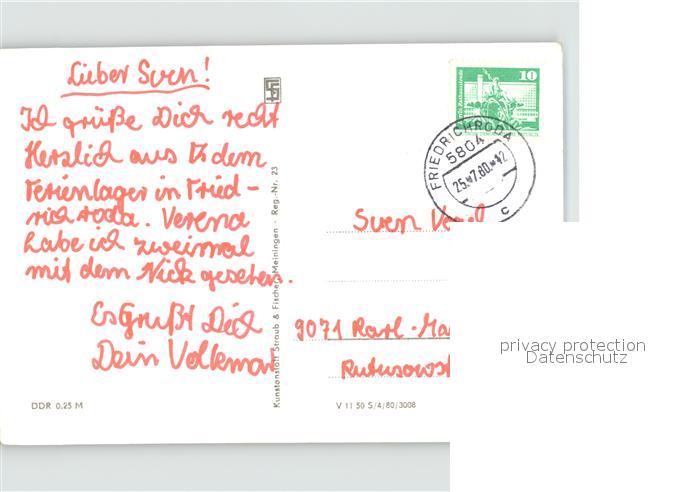 Lieber Sven!
Ich grüße Dich recht
Herzlich aus dem
Ferienlager in Fried-
richroda. Verena
habe ich zweimal
mit dem Nick gesehen.
Es Grüßt Dich
Dein Volkmar
DDR 0,25 M
Kunstanstalt Straub & Fischer Meiningen · Reg.-Nr. 23
10
FRIEDRICHRODA
5804
25.*7.80.*12
c
Sven
9071 Karl-Ma
V 11 50 S/4/80/3008
privacy protection
Datenschutz